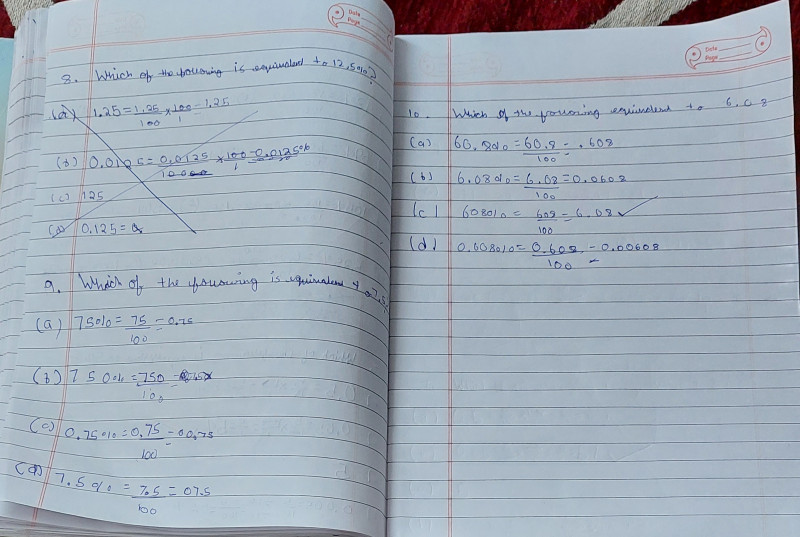 Date
Page
8. Which of the following is equivalent to 12.5%?
(a) 1.25 = 1.25/100 × 100/1 = 1.25
(b) 0.0125 = 0.0125/10000 × 100/1 = 0.0125%
(c) 125
(d) 0.125 =
9. Which of the following is equivalent to 7.5
(a) 75% = 75/100 = 0.75
(b) 750% = 750/100 =
(c) 0.75% = 0.75/100 =
(d) 7.5% = 7.5/100 = 07.5
Date
Page
10. Which of the following equivalent to 6.08
(a) 60.8% = 60.8/100 = .608
(b) 6.08% = 6.08/100 = 0.0608
(c) 608% = 608/100 = 6.08 ✓
(d) 0.608% = 0.608/100 = 0.00608